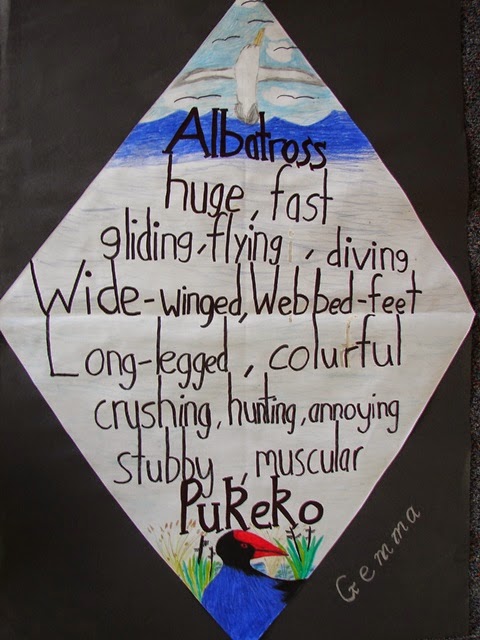 Albatross
huge, fast
gliding, flying, diving
Wide-winged, Webbed-feet
Long-legged, colurful
crushing, hunting, annoying
stubby, muscular
Pukeko
Gemma